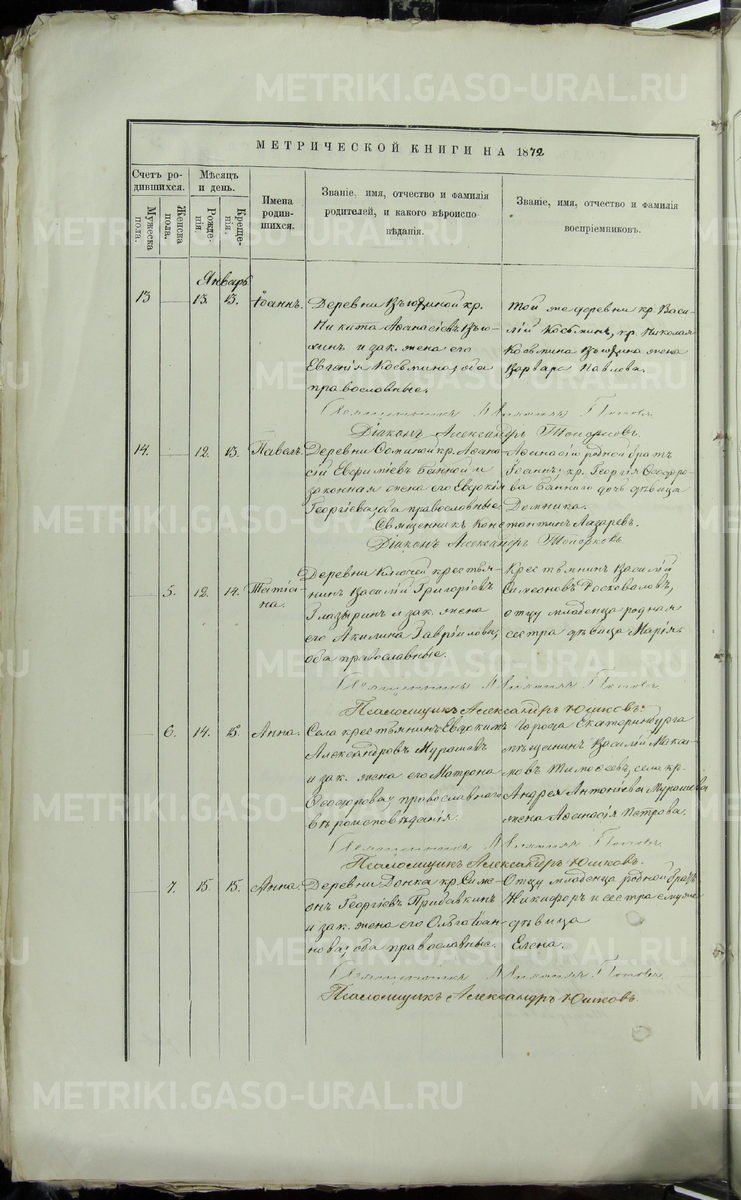 METRIKI.GASO-URAL.RU
МЕТРИЧЕСКОЙ КНИГИ НА 1872
Счетъ ро-
дившихся.
Мужеска
пола.
Женска
пола.
Мѣсяцъ
и день.
Рожде-
нія.
Креще-
нія.
Имена
родив-
шихся.
Званіе, имя, отчество и фамилія
родителей, и какого вѣроиспо-
вѣданія.
Званіе, имя, отчество и фамилія
воспріемниковъ.
Январь
13 13. 13. Іоаннъ.
Деревни кр.
Никита Аѳанасіевъ
и зак. жена его
Евгенія Косьмина, оба
православные.
Той же деревни кр. Васи-
лій Косьминъ, кр. Николая
Косьмина жена
Варвара Павлова.
Священникъ Поповъ
Діаконъ Александръ
14. 12. 13. Павелъ.
Деревни кр. Аѳана-
сій Евфиміевъ и
законная жена его Евдокія
Георгіева, оба православные.
Аѳанасія родной братъ
Іоаннъ; кр. Георгія Ѳеодоро-
ва дочь дѣвица
Домника.
Священникъ Константинъ Лазаревъ.
Діаконъ Александръ
5. 12. 14. Татіа-
на.
Деревни Ключей крестья-
нинъ Василій Григоріевъ
Глазыринъ и зак. жена
его Акилина Гавріилова,
оба православные.
Крестьянинъ Василій
Симеоновъ
отцу младенца родная
сестра дѣвица Марія.
Священникъ Поповъ
Псаломщикъ Александръ Юшковъ.
6. 14. 15. Анна.
Села крестьянинъ Евдокимъ
Александровъ Мурашевъ
и зак. жена его Матрона
Ѳеодорова, православнаго
вѣроисповѣданія.
Города Екатеринбурга
мѣщанинъ Василій Макси-
мовъ Тимоѳеевъ, села кр.
Андрея Антоніева Мурашева
жена Аѳанасія Петрова.
Священникъ Поповъ
Псаломщикъ Александръ Юшковъ.
7. 15. 15. Анна.
Деревни Донка кр. Симе-
онъ Георгіевъ Прибавкинъ
и зак. жена его Ольга Іоан-
нова, оба православные.
Отцу младенца родной братъ
Никифоръ и сестра
дѣвица
Елена.
Священникъ Поповъ
Псаломщикъ Александръ Юшковъ